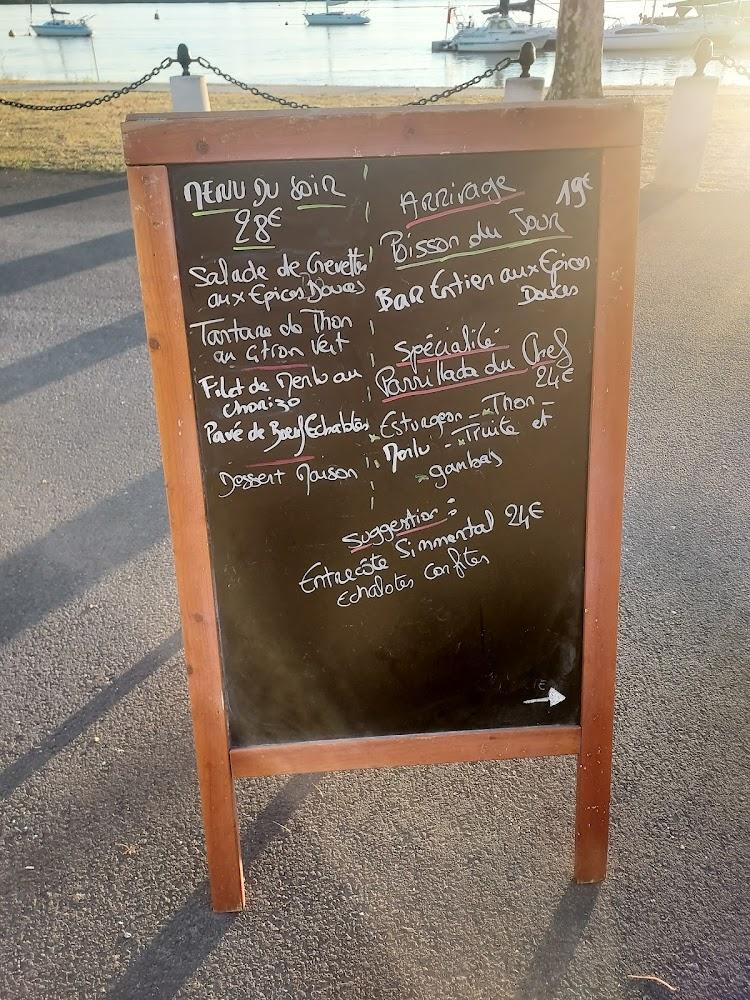 MENU DU SOIR
28€
Salade de Crevettes
aux Epices Douces
Tartare de Thon
au Citron Vert
Filet de Merlu au
Chorizo
Pavé de Boeuf Echalotes
Dessert Maison
Arrivage 19€
Poisson du Jour
BAR Entier aux Epices
Douces
Spécialité
Parrillada du Chef
24€
Esturgeon - Thon -
Merlu - Truite et
gambas
Suggestion :
Entrecôte Simmental 24€
Echalotes Confites